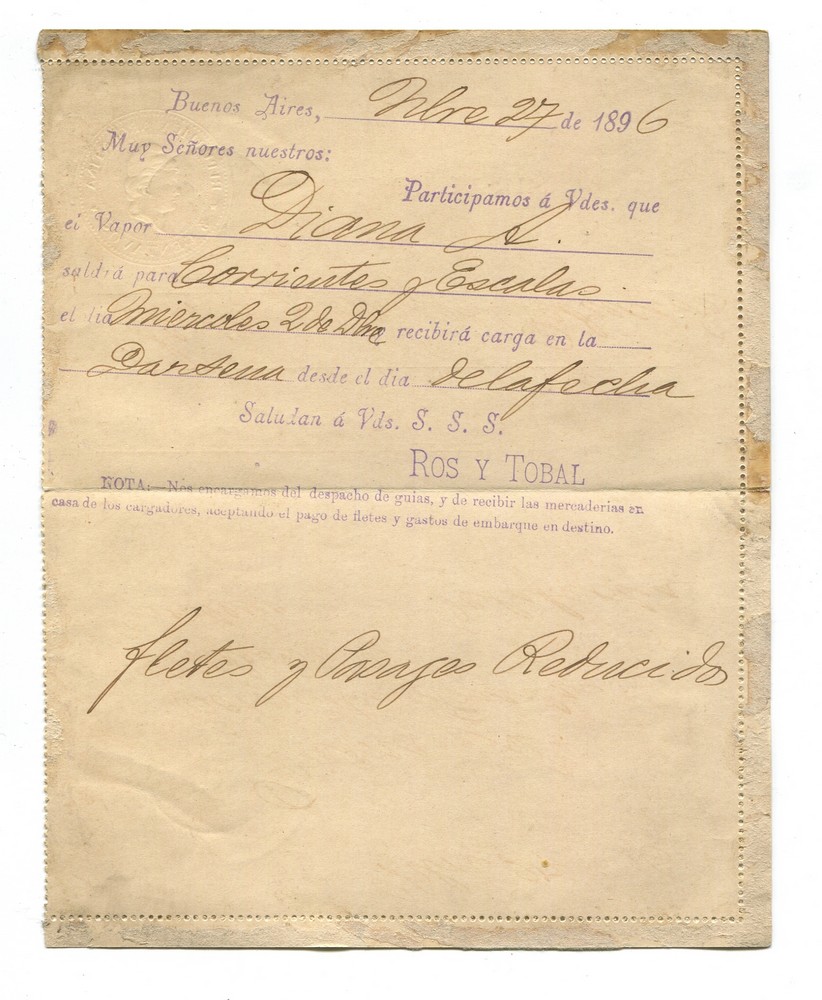 Buenos Aires, Nbre 27 de 1896
Muy Señores nuestros:
Participamos á Vdes. que
el Vapor Diana A.
saldrá para Corrientes y Escalas
el dia Miercoles 2 de Dbre recibirá carga en la
Darsena desde el dia de la fecha
Saludan á Vds. S. S. S.
ROS Y TOBAL
NOTA:—Nos encargamos del despacho de guias, y de recibir las mercaderias en
casa de los cargadores, aceptando el pago de fletes y gastos de embarque en destino.
fletes y Pasages Reducidos